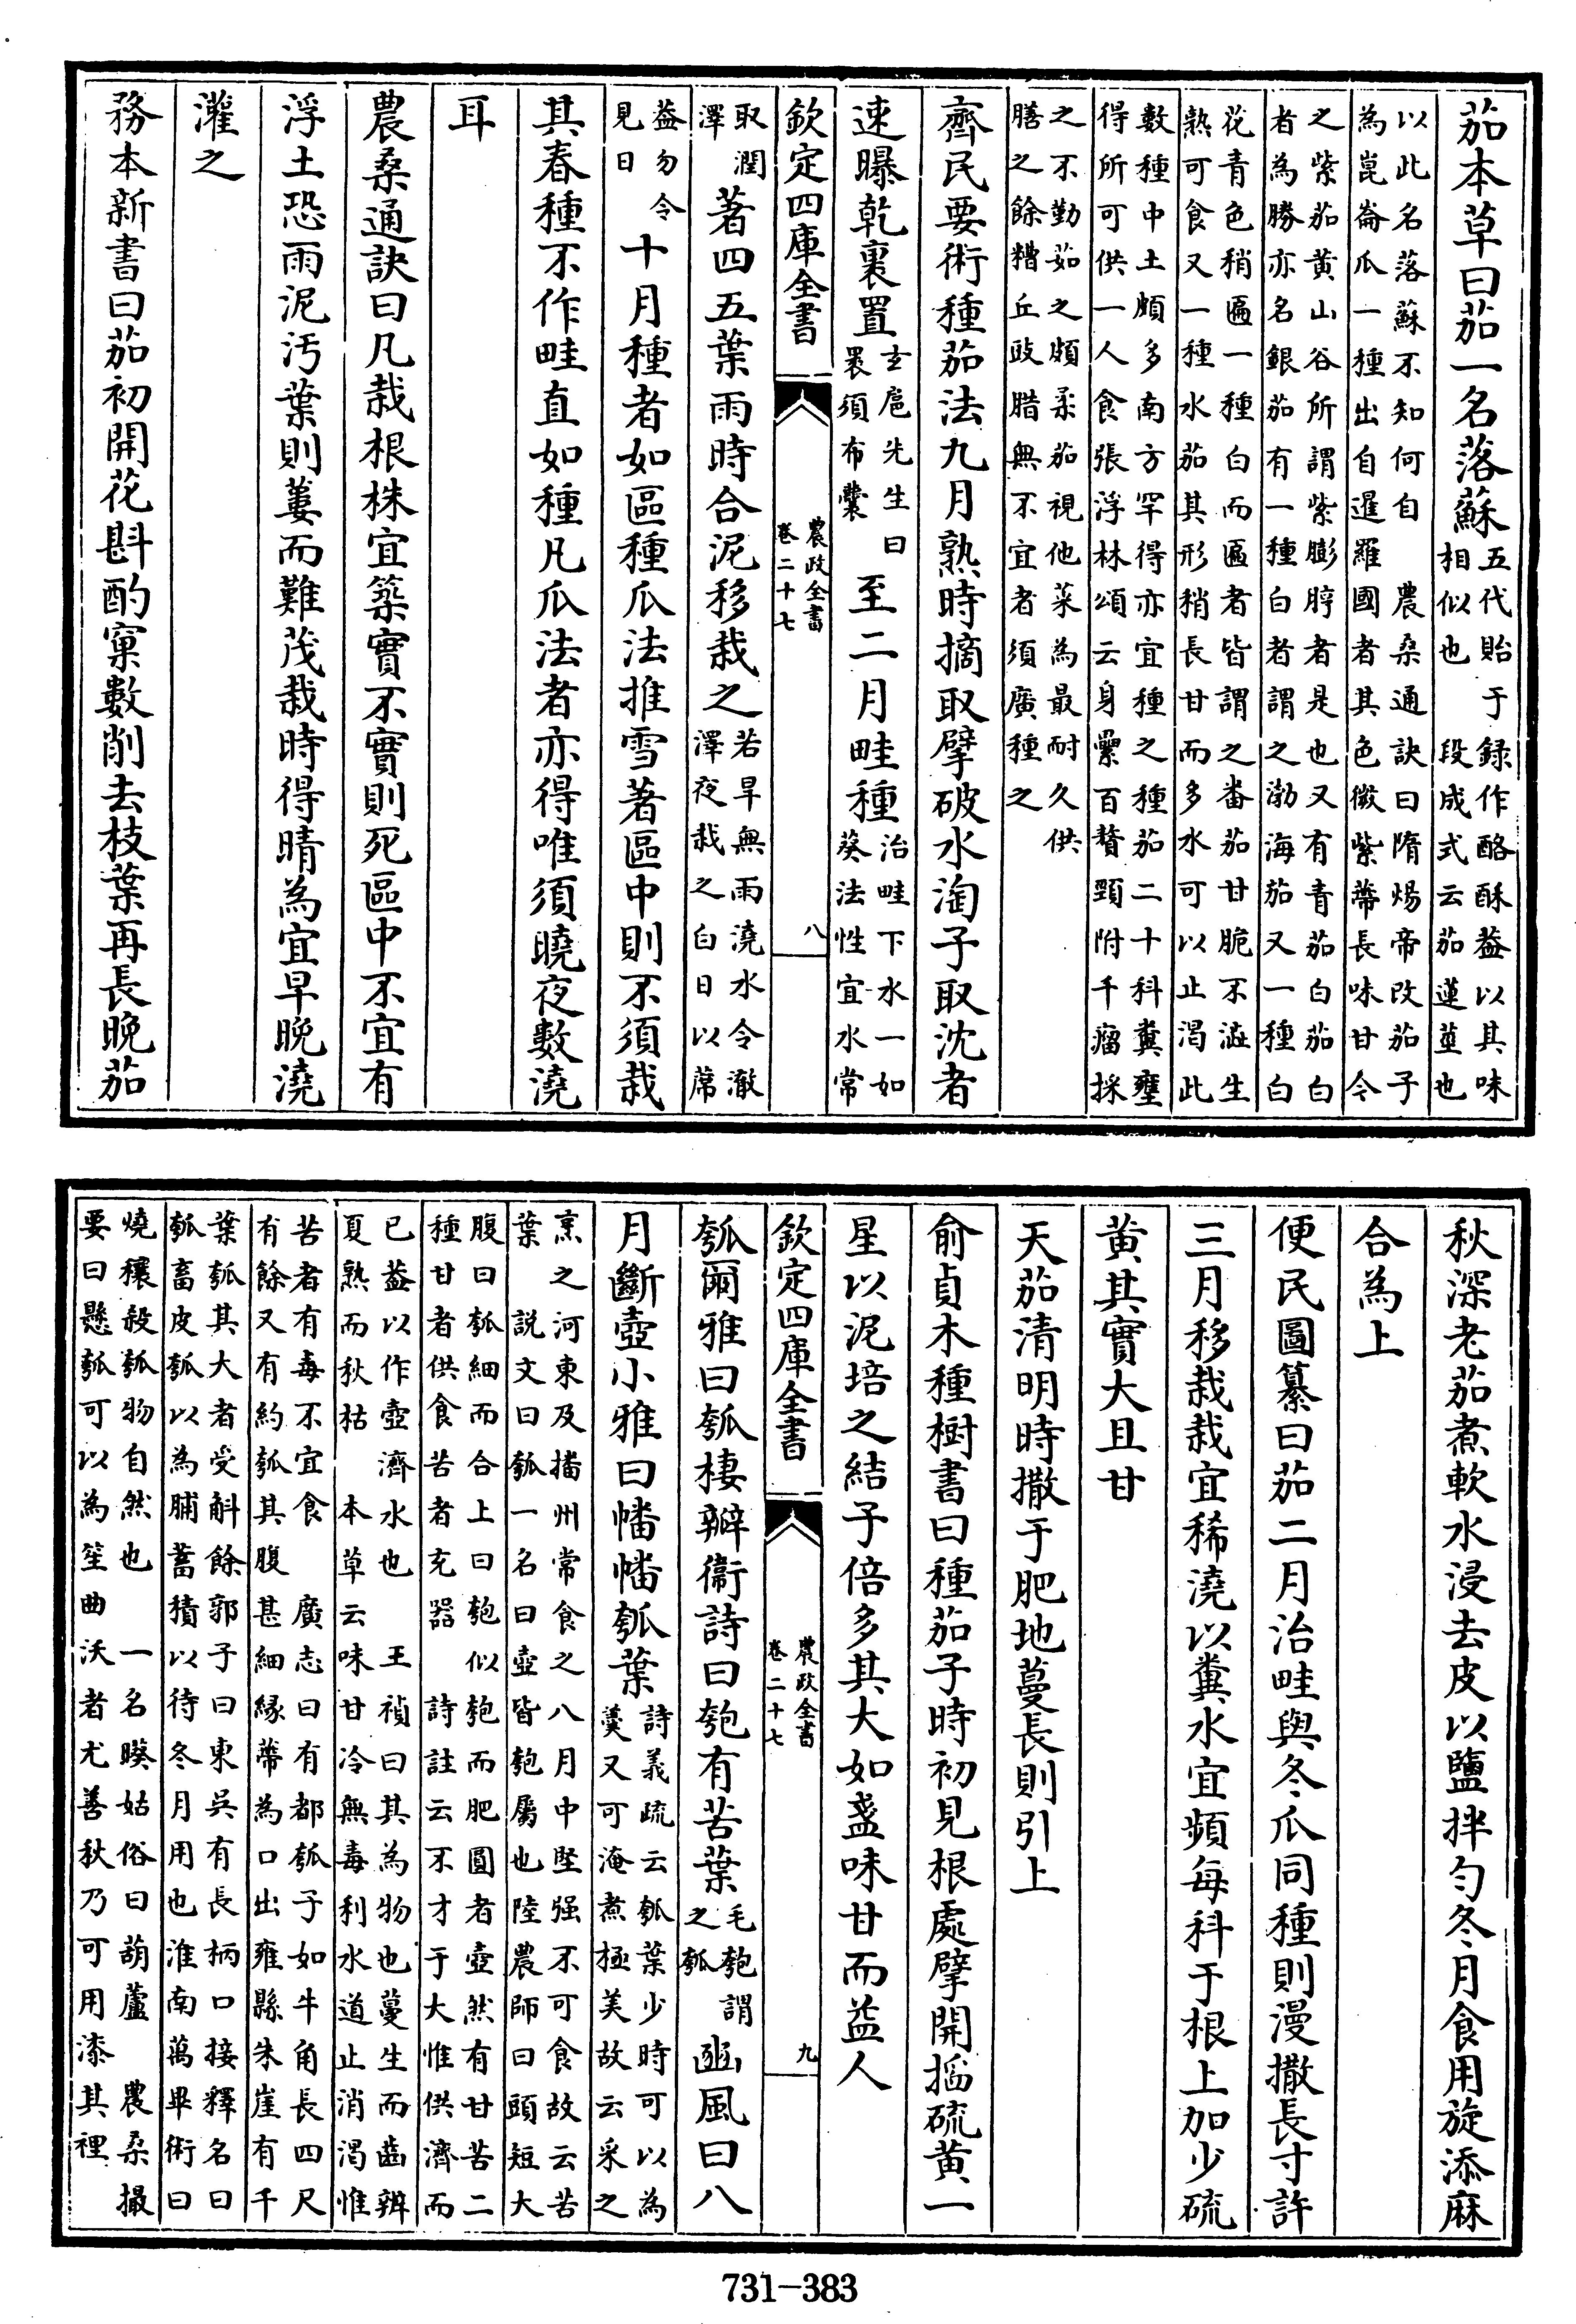 茄本草曰茄一名落蘇
五代貽于録作酪酥葢以其味
相似也　段成式云茄蓮莖也
以此名落蘇不知何自　農桑通訣曰隋煬帝改茄子
為崑崙瓜一種出自暹羅國者其色微紫蒂長味甘今
之紫茄黄山谷所謂紫膨脝者是也又有青茄白茄白
者為勝亦名銀茄有一種白者謂之渤海茄又一種白
花青色稍匾一種白而匾者皆謂之番茄甘脆不澁生
熟可食又一種水茄其形稍長甘而多水可以止渴此
數種中土頗多南方罕得亦宜種之種茄二十科糞壅
得所可供一人食張浮林頌云身纍百贅頸附千瘤採
之不勤茹之頗柔茄視他菜為最耐久供
膳之餘糟丘豉腊無不宜者須廣種之
齊民要術種茄法九月熟時摘取擘破水淘子取沈者
速曝乾裏置
玄扈先生曰
裹須布囊
至二月畦種
治畦下水一如
葵法性宜水常
欽定四庫全書
農政全書
卷二十七
八
取潤
澤
著四五葉雨時合泥移栽之
若旱無雨澆水令澈
澤夜栽之白日以蓆
葢勿令
見日
十月種者如區種瓜法推雪著區中則不須栽
其春種不作畦直如種凡瓜法者亦得唯須曉夜數澆
耳
農桑通訣曰凡栽根株宜築實不實則死區中不宜有
浮土恐雨泥汚葉則萎而難茂栽時得晴為宜早晚澆
灌之
務本新書曰茄初開花斟酌窠數削去枝葉再長晚茄
秋深老茄煮軟水浸去皮以鹽拌匀冬月食用旋添麻
合為上
便民圖纂曰茄二月治畦與冬瓜同種則漫撒長寸許
三月移栽栽宜稀澆以糞水宜頻每科于根上加少硫
黄其實大且甘
天茄清明時撒于肥地蔓長則引上
俞貞木種樹書曰種茄子時初見根處擘開搯硫黄一
星以泥培之結子倍多其大如盞味甘而益人
欽定四庫全書
農政全書
卷二十七
九
瓠爾雅曰瓠棲瓣衞詩曰匏有苦葉
毛匏謂
之瓠
豳風曰八
月斷壺小雅曰幡幡瓠葉
詩義疏云瓠葉少時可以為
羮又可淹煮極美故云采之
烹之河東及播州常食之八月中堅强不可食故云苦
葉　說文曰瓠一名曰壺皆匏屬也陸農師曰頭短大
腹曰瓠細而合上曰匏似匏而肥圓者壺然有甘苦二
種甘者供食苦者充器　詩註云不才于大惟供濟而
已葢以作壺濟水也　王禎曰其為物也蔓生而齒辨
夏熟而秋枯　本草云味甘冷無毒利水道止消渴惟
苦者有毒不宜食　廣志曰有都瓠子如牛角長四尺
有餘又有約瓠其腹甚細緣蒂為口出雍縣朱崖有千
葉瓠其大者受斛餘郭子曰東吳有長柄口接釋名曰
瓠畜皮瓠以為脯蓄積以待冬月用也淮南萬畢術曰
燒穰殺瓠物自然也　一名㬸姑俗曰葫蘆　農桑撮
要曰懸瓠可以為笙曲沃者尤善秋乃可用漆其裡
731-383